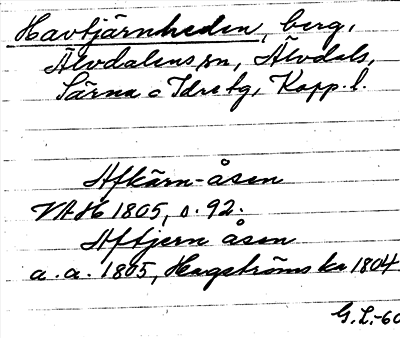 Havtjärnheden, berg,
Älvdalens sn, Älvdals,
Särna o Idre tg, Kopp. l.
Afkärn-åsen
VAH 1805, s. 92.
Aftjern åsen
a. a. 1805, Hagströms ka 1804
G.L.-60